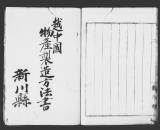 越中國
物産製造方法書
新川縣